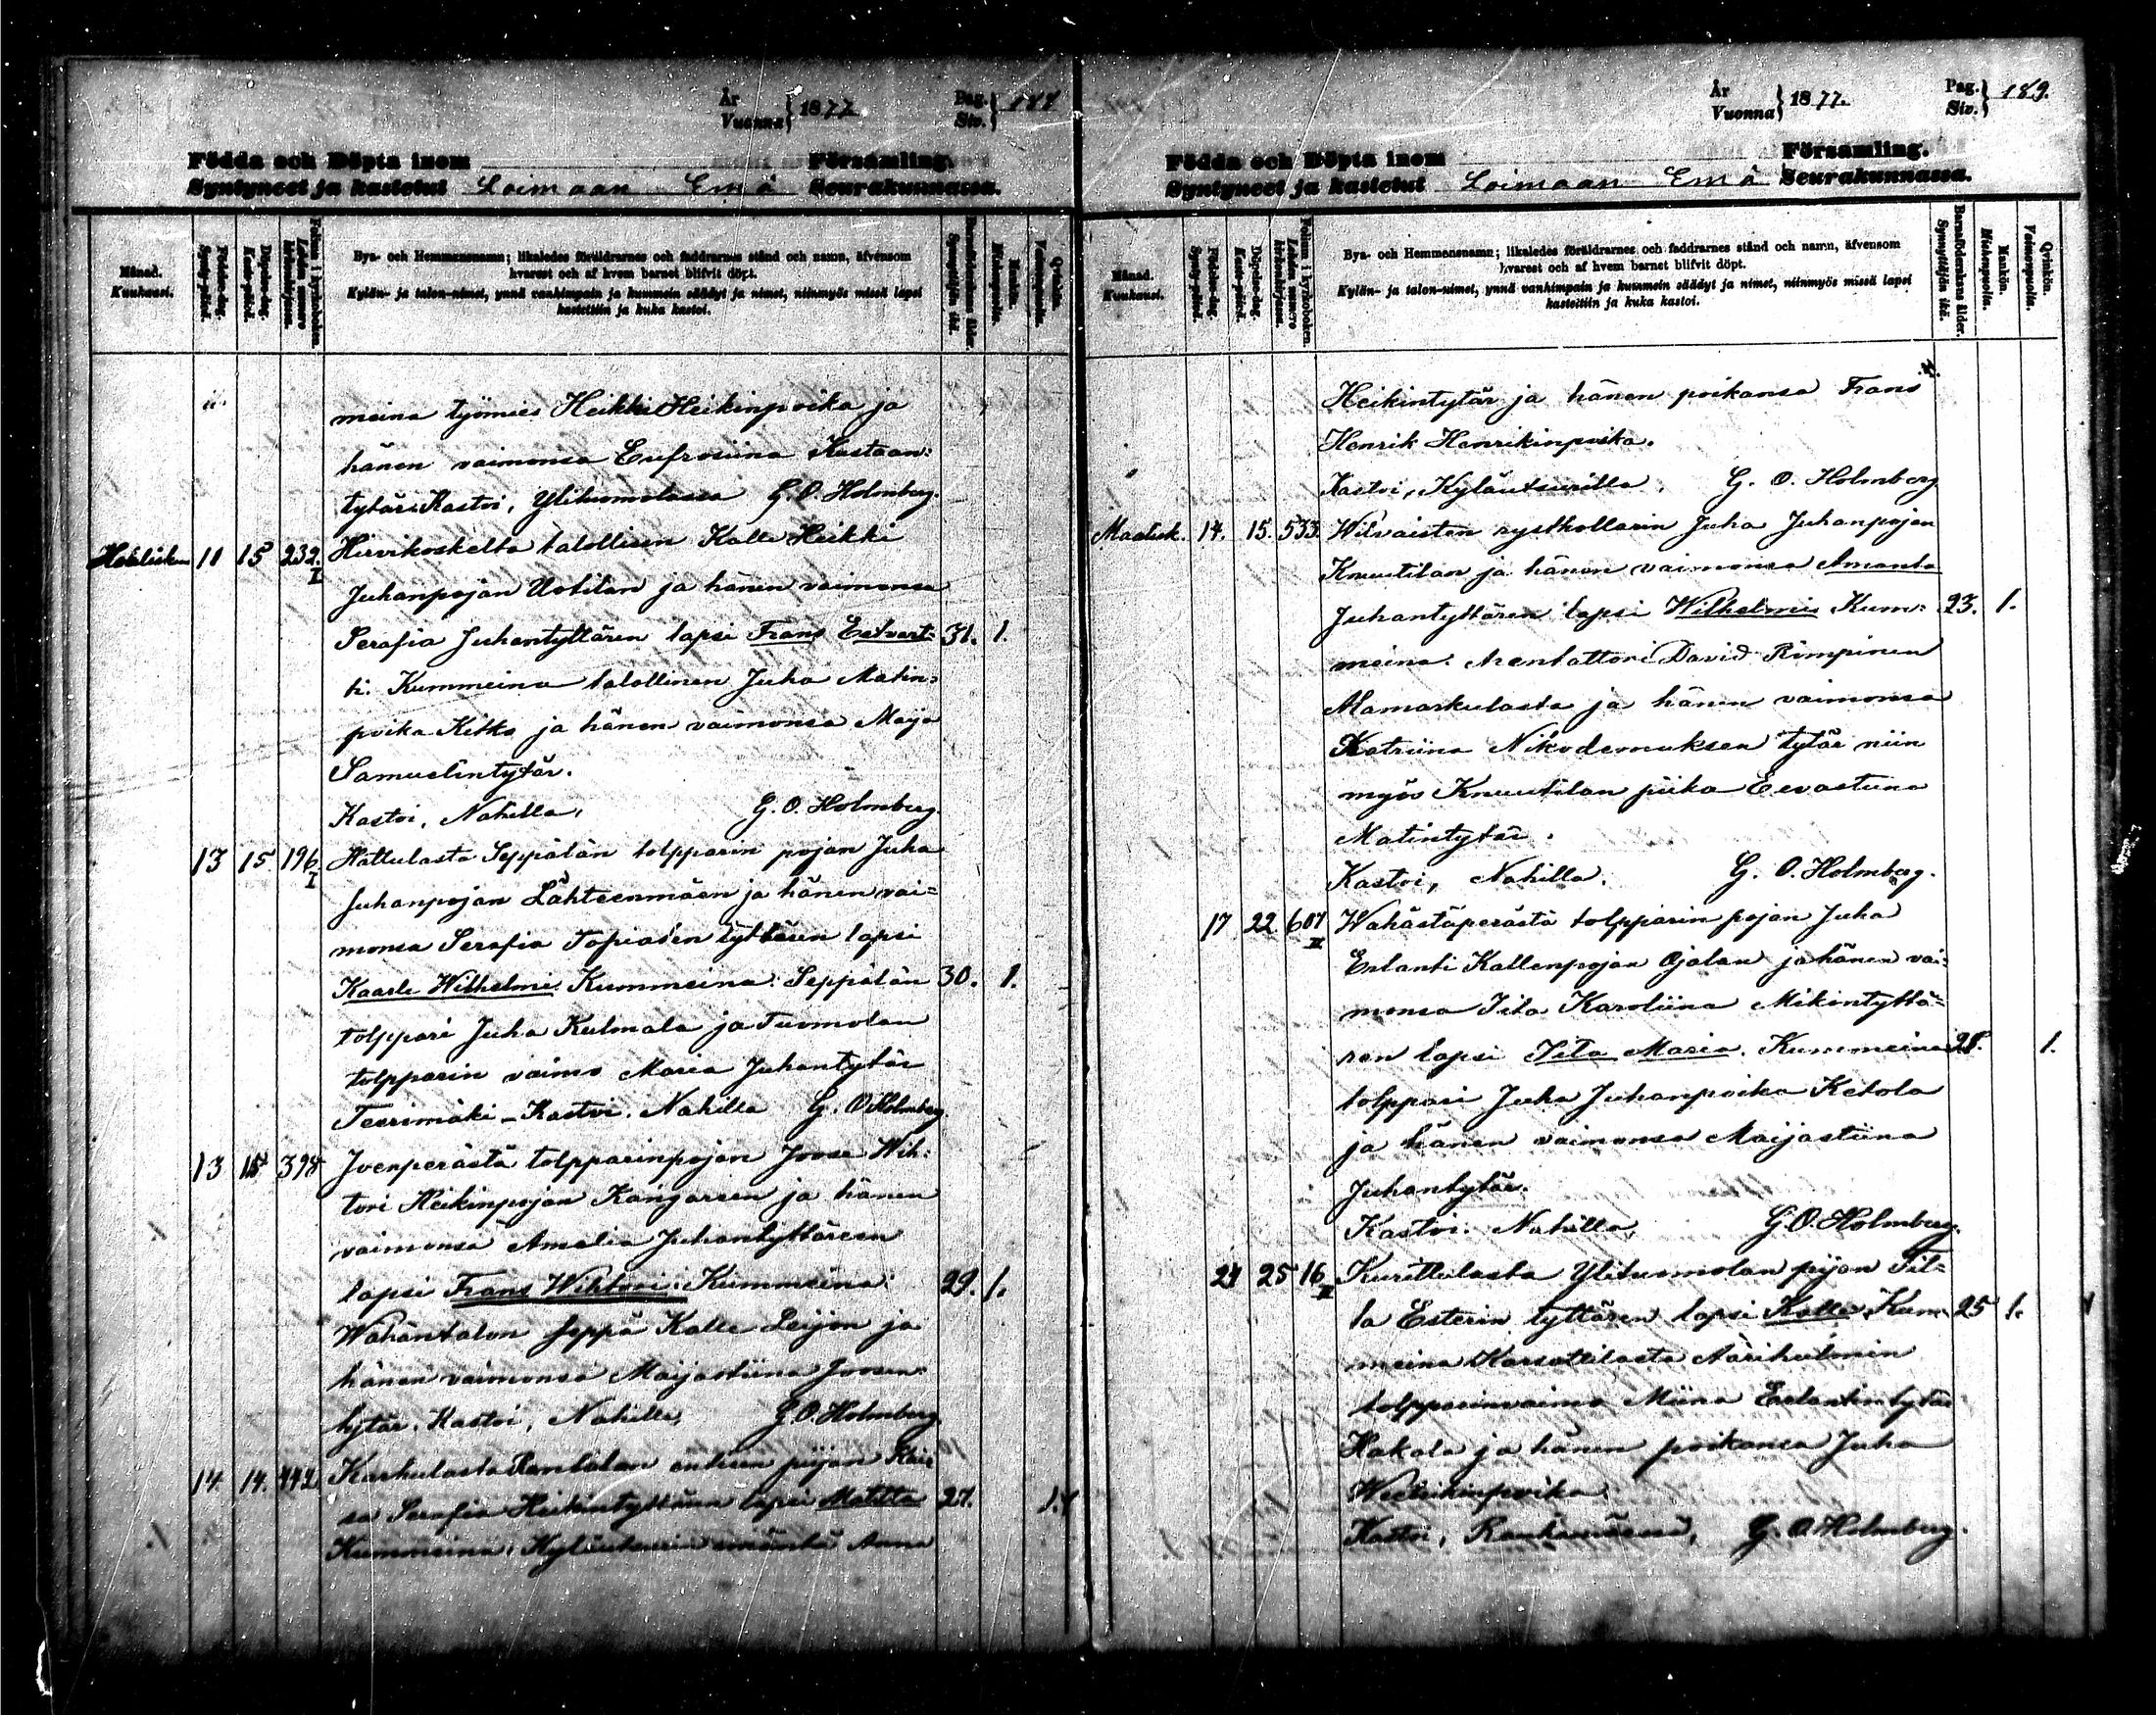 År
Vuonna } 1877.
Pag.
Siv. } 188
Födda och Döpta inom Församling.
Syntyneet ja kastetut Loimaan Emä Seurakunnassa.
Månad.
Kuukausi.
Födelse-dag.
Synty-päivä.
Döpelse-dag.
Kaste-päivä.
Folium i kyrkoboken.
Lehden numero kirkonkirjassa.
Bya- och Hemmansnamn; likaledes föräldrarnes och faddrarnes stånd och namn, äfvensom
hvarest och af hvem barnet blifvit döpt.
Kylän- ja talon-nimet, ynnä vanhimpain ja kummein säädyt ja nimet, niinmyös missä lapsi
kastettiin ja kuka kastoi.
Barnaföderskans ålder.
Synnyttäjän ikä.
Mankön.
Miehenpuolia.
Qvinkön.
Vaimonpuolia.
meina työmies Heikki Heikinpoika ja
hänen vaimonsa Eufrosiina Kustaan-
tytär. Kastoi, Ylituomolassa G. O. Holmberg.
11 15 232. I Hirvikoskelta talollisen Kalle Heikki
Juhanpojan Uotilan ja hänen vaimonsa
Serafia Juhantyttären lapsi Frans Eetvart- 31. 1.
ti. Kummeina talollinen Juha Matin-
poika Kitko ja hänen vaimonsa Maija
Samuelintytär.
Kastoi, Nahilla, G. O. Holmberg.
13 15. 196 I Hattulasta Seppälän tolpparin pojan Juha
Juhanpojan Lähteenmäen ja hänen vai=
monsa Serafia Topiaden tyttären lapsi
Kaarle Wilhelmi. Kummeina: Seppälän 30. 1.
tolppari Juha Kulmala ja Tuomolan
tolpparin vaimo Maria Juhantytär
Teerimäki - Kastoi. Nahilla G. O. Holmberg
13 15 398 Joenperästä tolpparinpojan Joose Wih-
tori Heikinpojan Kangarsen ja hänen
vaimonsa Amalia Juhantyttäreen
lapsi Frans Wihtori. Kummeina: 29. 1.
Wahäntalon seppä Kalle Leijon ja
hänen vaimonsa Maijastiina Joosen-
tytär. Kastoi, Nahilla, G. O. Holmberg
14 14. 442 Karhulasta Rantalan entisen piijan
sa Serafia Heikintyttären lapsi Matilta 27. 1.
Kummeina: Anna
År
Vuonna } 1877.
Pag.
Siv. } 189.
Födda och Döpta inom Församling.
Syntyneet ja kastetut Loimaan Emä Seurakunnassa.
Månad.
Kuukausi.
Födelse-dag.
Synty-päivä.
Döpelse-dag.
Kaste-päivä.
Folium i kyrkoboken.
Lehden numero kirkonkirjassa.
Bya- och Hemmansnamn; likaledes föräldrarnes och faddrarnes stånd och namn, äfvensom
hvarest och af hvem barnet blifvit döpt.
Kylän- ja talon-nimet, ynnä vanhimpain ja kummein säädyt ja nimet, niinmyös missä lapsi
kastettiin ja kuka kastoi.
Barnaföderskans ålder.
Synnyttäjän ikä.
Mankön.
Miehenpuolia.
Qvinkön.
Vaimonpuolia.
Heikintytär ja hänen poikansa Frans
Henrik Henrikinpoika.
Kastoi, G. O. Holmberg
Maalisk. 14. 15. 533. Wilvaisten rysthollarin Juha Juhanpojan
Knuutilan ja hänen vaimonsa Amanta
Juhantyttären lapsi Wilhelmi Kum- 23. 1.
meina: Arentattori David Rimpinen
Mamarkulasta ja hänen vaimonsa
Katriina Nikodemuksen tytär niin
myös Knuutilan piika Eevastiina
Matintytär.
Kastoi, Nahilla. G. O. Holmberg.
17 22 607 II Wahästäperästä tolpparin pojan Juha
Erlanti Kallenpojan Ojalan ja hänen vai-
monsa Iita Karoliina Mikintyttä-
ren lapsi Iita Maria. Kummeina 28. 1.
tolppari Juha Juhanpoika Ketola
ja hänen vaimonsa Maijastiina
Juhantytär.
Kastoi. Nahilla, G. O. Holmberg.
24 25 16 II Kurittulasta Ylituomolan piijan
la Esterin tyttären lapsi Kalle. Kum- 25 1.
meina
tolpparinvaimo Miina Erlantintytär
Hakala ja hänen poikansa Juha
Kastoi, G. O. Holmberg.